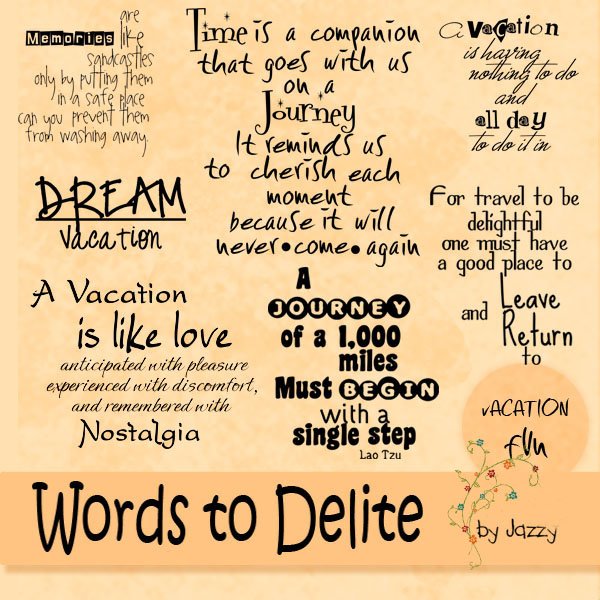 are
Memories like
sandcastles
only by putting them
in a safe place
can you prevent them
from washing away.
Time is a companion
that goes with us
on a
Journey
It reminds us
to cherish each
moment
because it will
never•come•again
A Vacation
is having
nothing to do
and
all day
to do it in
DREAM
vacation
For travel to be
delightful
one must have
a good place to
Leave
and
Return
to
A Vacation
is like love
anticipated with pleasure
experienced with discomfort,
and remembered with
Nostalgia
A
JOURNEY
of a 1,000
miles
Must BEGIN
with a
single step
Lao Tzu
vACATION
fUn
Words to Delite
by Jazzy